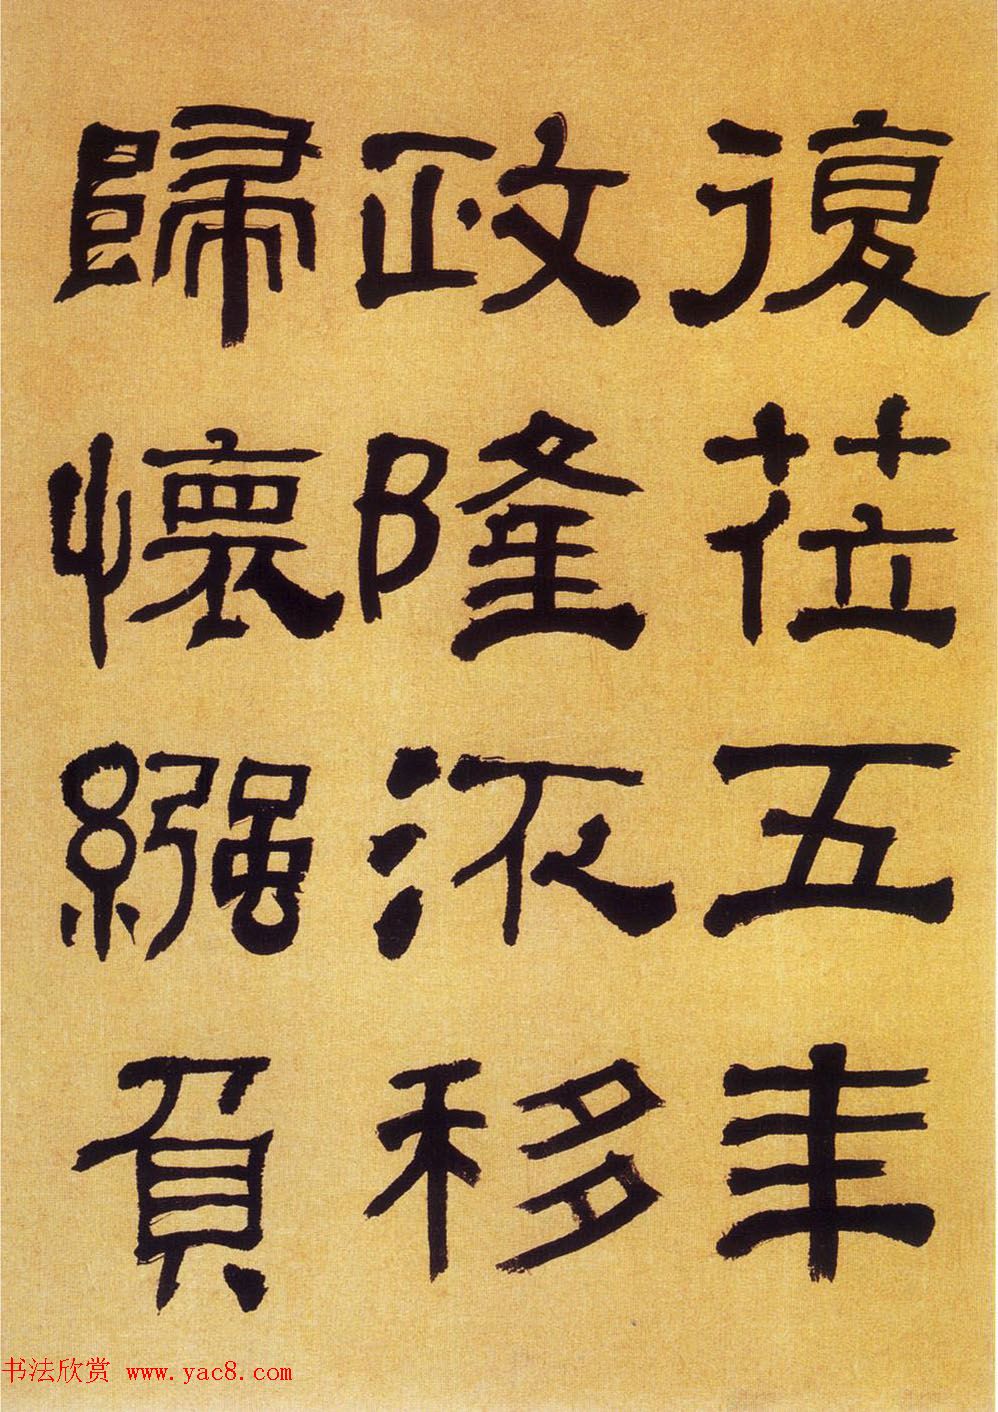 復莅五年
政隆移
歸懷繈負
书法欣赏 www.yac8.com